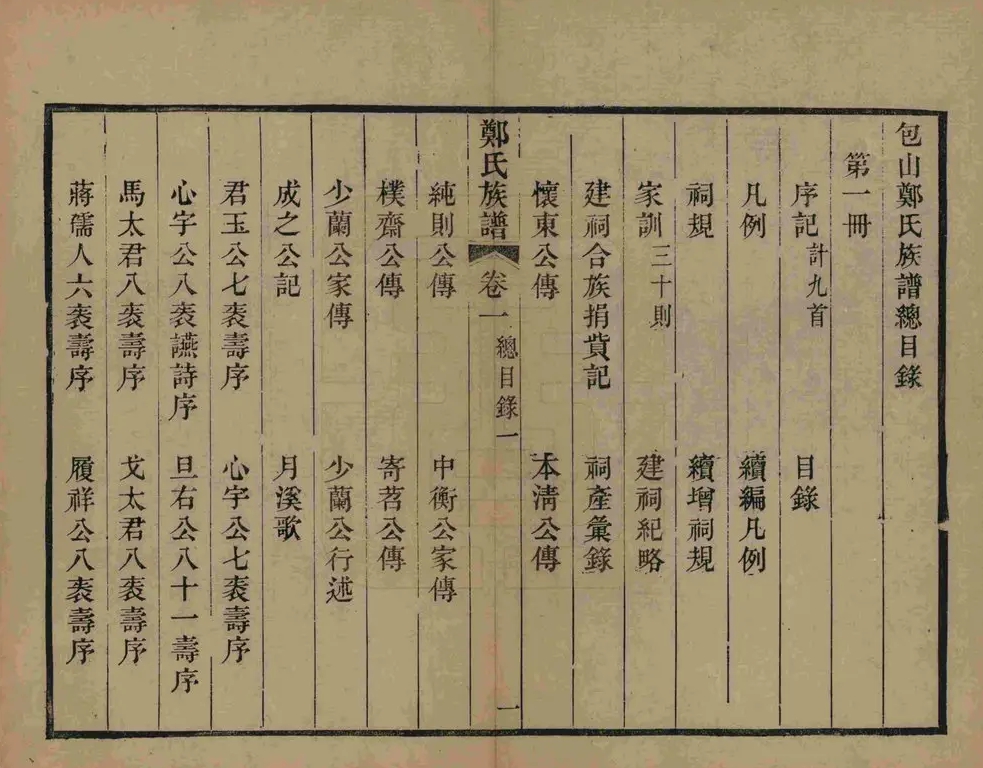 包山鄭氏族譜總目錄
第一冊
序記計九首　目錄
凡例　續編凡例
祠規　續增祠規
家訓三十則　建祠紀略
建祠合族捐貲記　祠產彙錄
懷東公傳　本淸公傳
鄭氏族譜　卷一　總目錄一　一
純則公傳　中衡公家傳
樸齋公傳　寄茗公傳
少蘭公家傳　少蘭公行述
成之公記　月溪歌
君玉公七袠壽序　心字公七袠壽序
心字公八袠讌詩序　旦右公八十一壽序
馬太君八袠壽序　戈太君八袠壽序
蔣孺人六袠壽序　履祥公八袠壽序